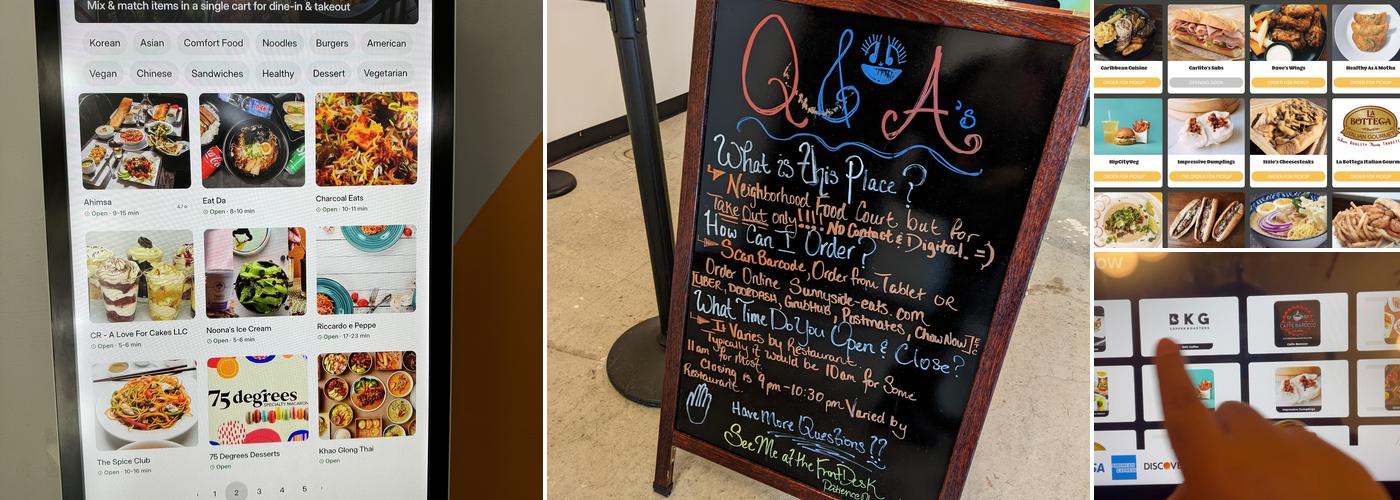 Mix & match items in a single cart for dine-in & takeout
Korean Asian Comfort Food Noodles Burgers American
Vegan Chinese Sandwiches Healthy Dessert Vegetarian
Ahimsa
Open · 9-15 min
Eat Da
Open · 8-10 min
Charcoal Eats
Open · 10-11 min
CR - A Love For Cakes LLC
Open · 5-6 min
Noona's Ice Cream
Open · 5-6 min
Riccardo e Peppe
Open · 17-23 min
75 degrees
SPECIALTY MACARON
The Spice Club
Open · 10-16 min
75 Degrees Desserts
Open
Khao Glong Thai
Open
1 2 3 4 5
Q & A's
What is this Place?
Neighborhood Food Court but for
Take Out only!!! No Contact & Digital. =)
How Can I Order?
Scan Barcode, Order from Tablet OR
Order Online Sunnyside-eats.com
UBER, DOORDASH, GrubHub, Postmates, ChowNow
What Time Do You Open & Close?
It Varies by Restaurant.
Typically it would be 10am for Some
11am for most.
Closing is 9pm-10:30pm Varied by
Restaurant.
Have More Questions??
See Me at the Front Desk
Patience
Caribbean Cuisine
ORDER FOR PICKUP
Carlito's Subs
OPENING SOON
Dave's Wings
ORDER FOR PICKUP
Healthy As A Motha
ORDER FOR PICKUP
LA BOTTEGA
ITALIAN GOURMET
HipCityVeg
ORDER FOR PICKUP
Impressive Dumplings
PRE ORDER FOR PICKUP
Ittie's Cheesesteaks
ORDER FOR PICKUP
La Bottega Italian Gourm
ORDER FOR PICKUP
OW
BKG
COFFEE ROASTERS
BKG Coffee
CAFFE BAROCCO
Caffe Barocco
Impressive Dumplings
SA
AMERICAN EXPRESS
DISCOVE